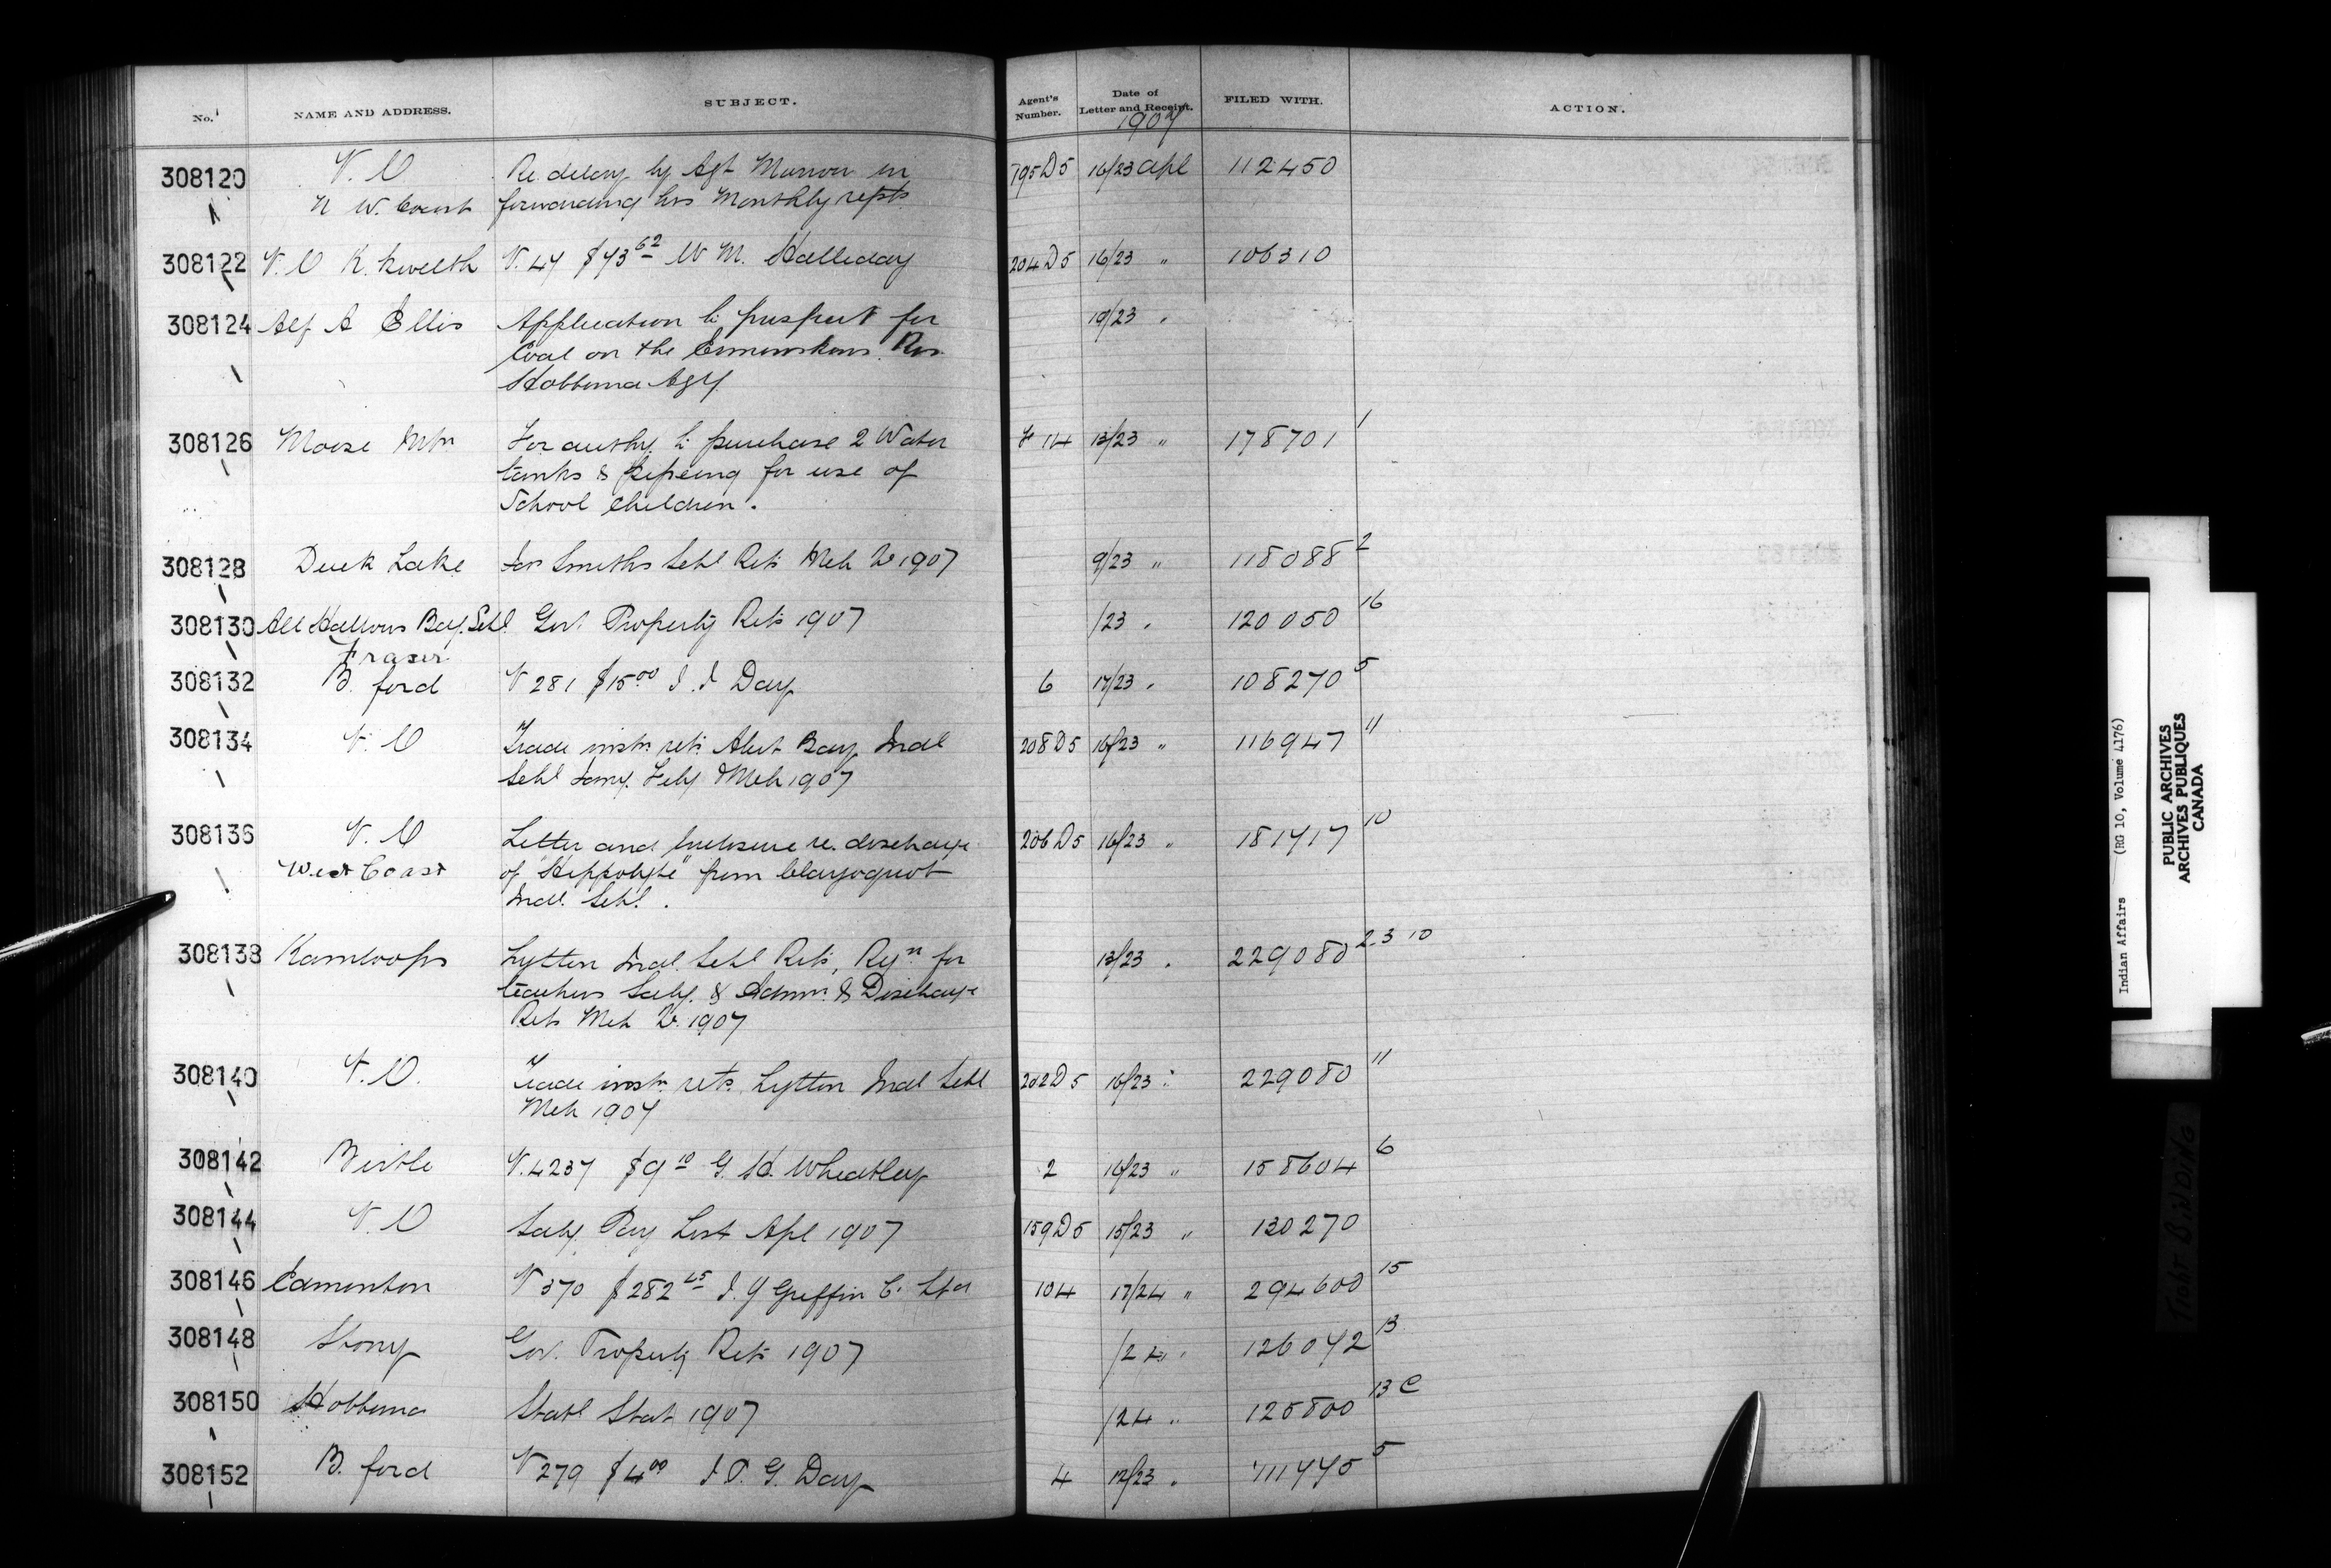 No. NAME AND ADDRESS. SUBJECT. Agent's Number. Date of Letter and Receipt. FILED WITH. ACTION.
1907
308120 V. O Re. delay by Agt Morrow in 795 D5 16/23 apl 112450
N W. Coast forwarding his Monthly repts
308122 V. O K. Kwelth V. 47 $73 62 W M. Halliday 204 D5 16/23 " 106310
308124 Alf A Ellis Application to prospect for 19/23 "
Coal on the Ermineskins Res.
Hobbema Agy.
308126 Moose Mtn For authy. to purchase 2 Water 13/23 " 178701 1
tanks & pipeing for use of
School Children.
308128 Duck Lake Jas Smiths Schl Rets Mch Qr 1907 9/23 " 118088 2
308130 All Hallows Bdg. Schl. Govt Property Rets 1907 /23 " 120050 16
Fraser
308132 B. ford V 281 $15 00 I. I Day 6 17/23 " 108270 5
308134 V. O Trade instn. rets Alert Bay Indl 208 D5 16/23 " 116947 11
Schl Jany. Feby & Mch 1907
308136 V. O Letter and Enclosure re. discharge 206 D5 16/23 " 181717 10
West Coast of "Hippolyte" from Clayoquot
Indl. Schl.
308138 Kamloops Lytton Indl. Schl Rets, Reqn for 13/23 " 229080 2-3 10
teachers Saly. & Admn. & Discharge
Rets Mch Qr. 1907
308140 V. O. Trade instn. rets. Lytton Indl Schl 202 D5 16/23 " 229080 11
Mch 1907
308142 Birtle V. 4237 $9 10 G. H. Wheatley 2 16/23 " 158604 6
308144 V. O Saly. Pay List Apl 1907 159 D5 15/23 " 130270
308146 Edmonton V 370 $282 25 J. Y Griffin C. Ltd 104 17/24 " 294600 15
308148 Stony Gov. Property Rets 1907 /24 " 126072 13
308150 Hobbema Statl Stat 1907 /24 " 125800 13 C
308152 B. ford V 279 $4 00 I. P. G. Day 4 12/23 " 111770 5
Indian Affairs (RG 10, Volume 4176)
PUBLIC ARCHIVES
ARCHIVES PUBLIQUES
CANADA
TIGHT BINDING